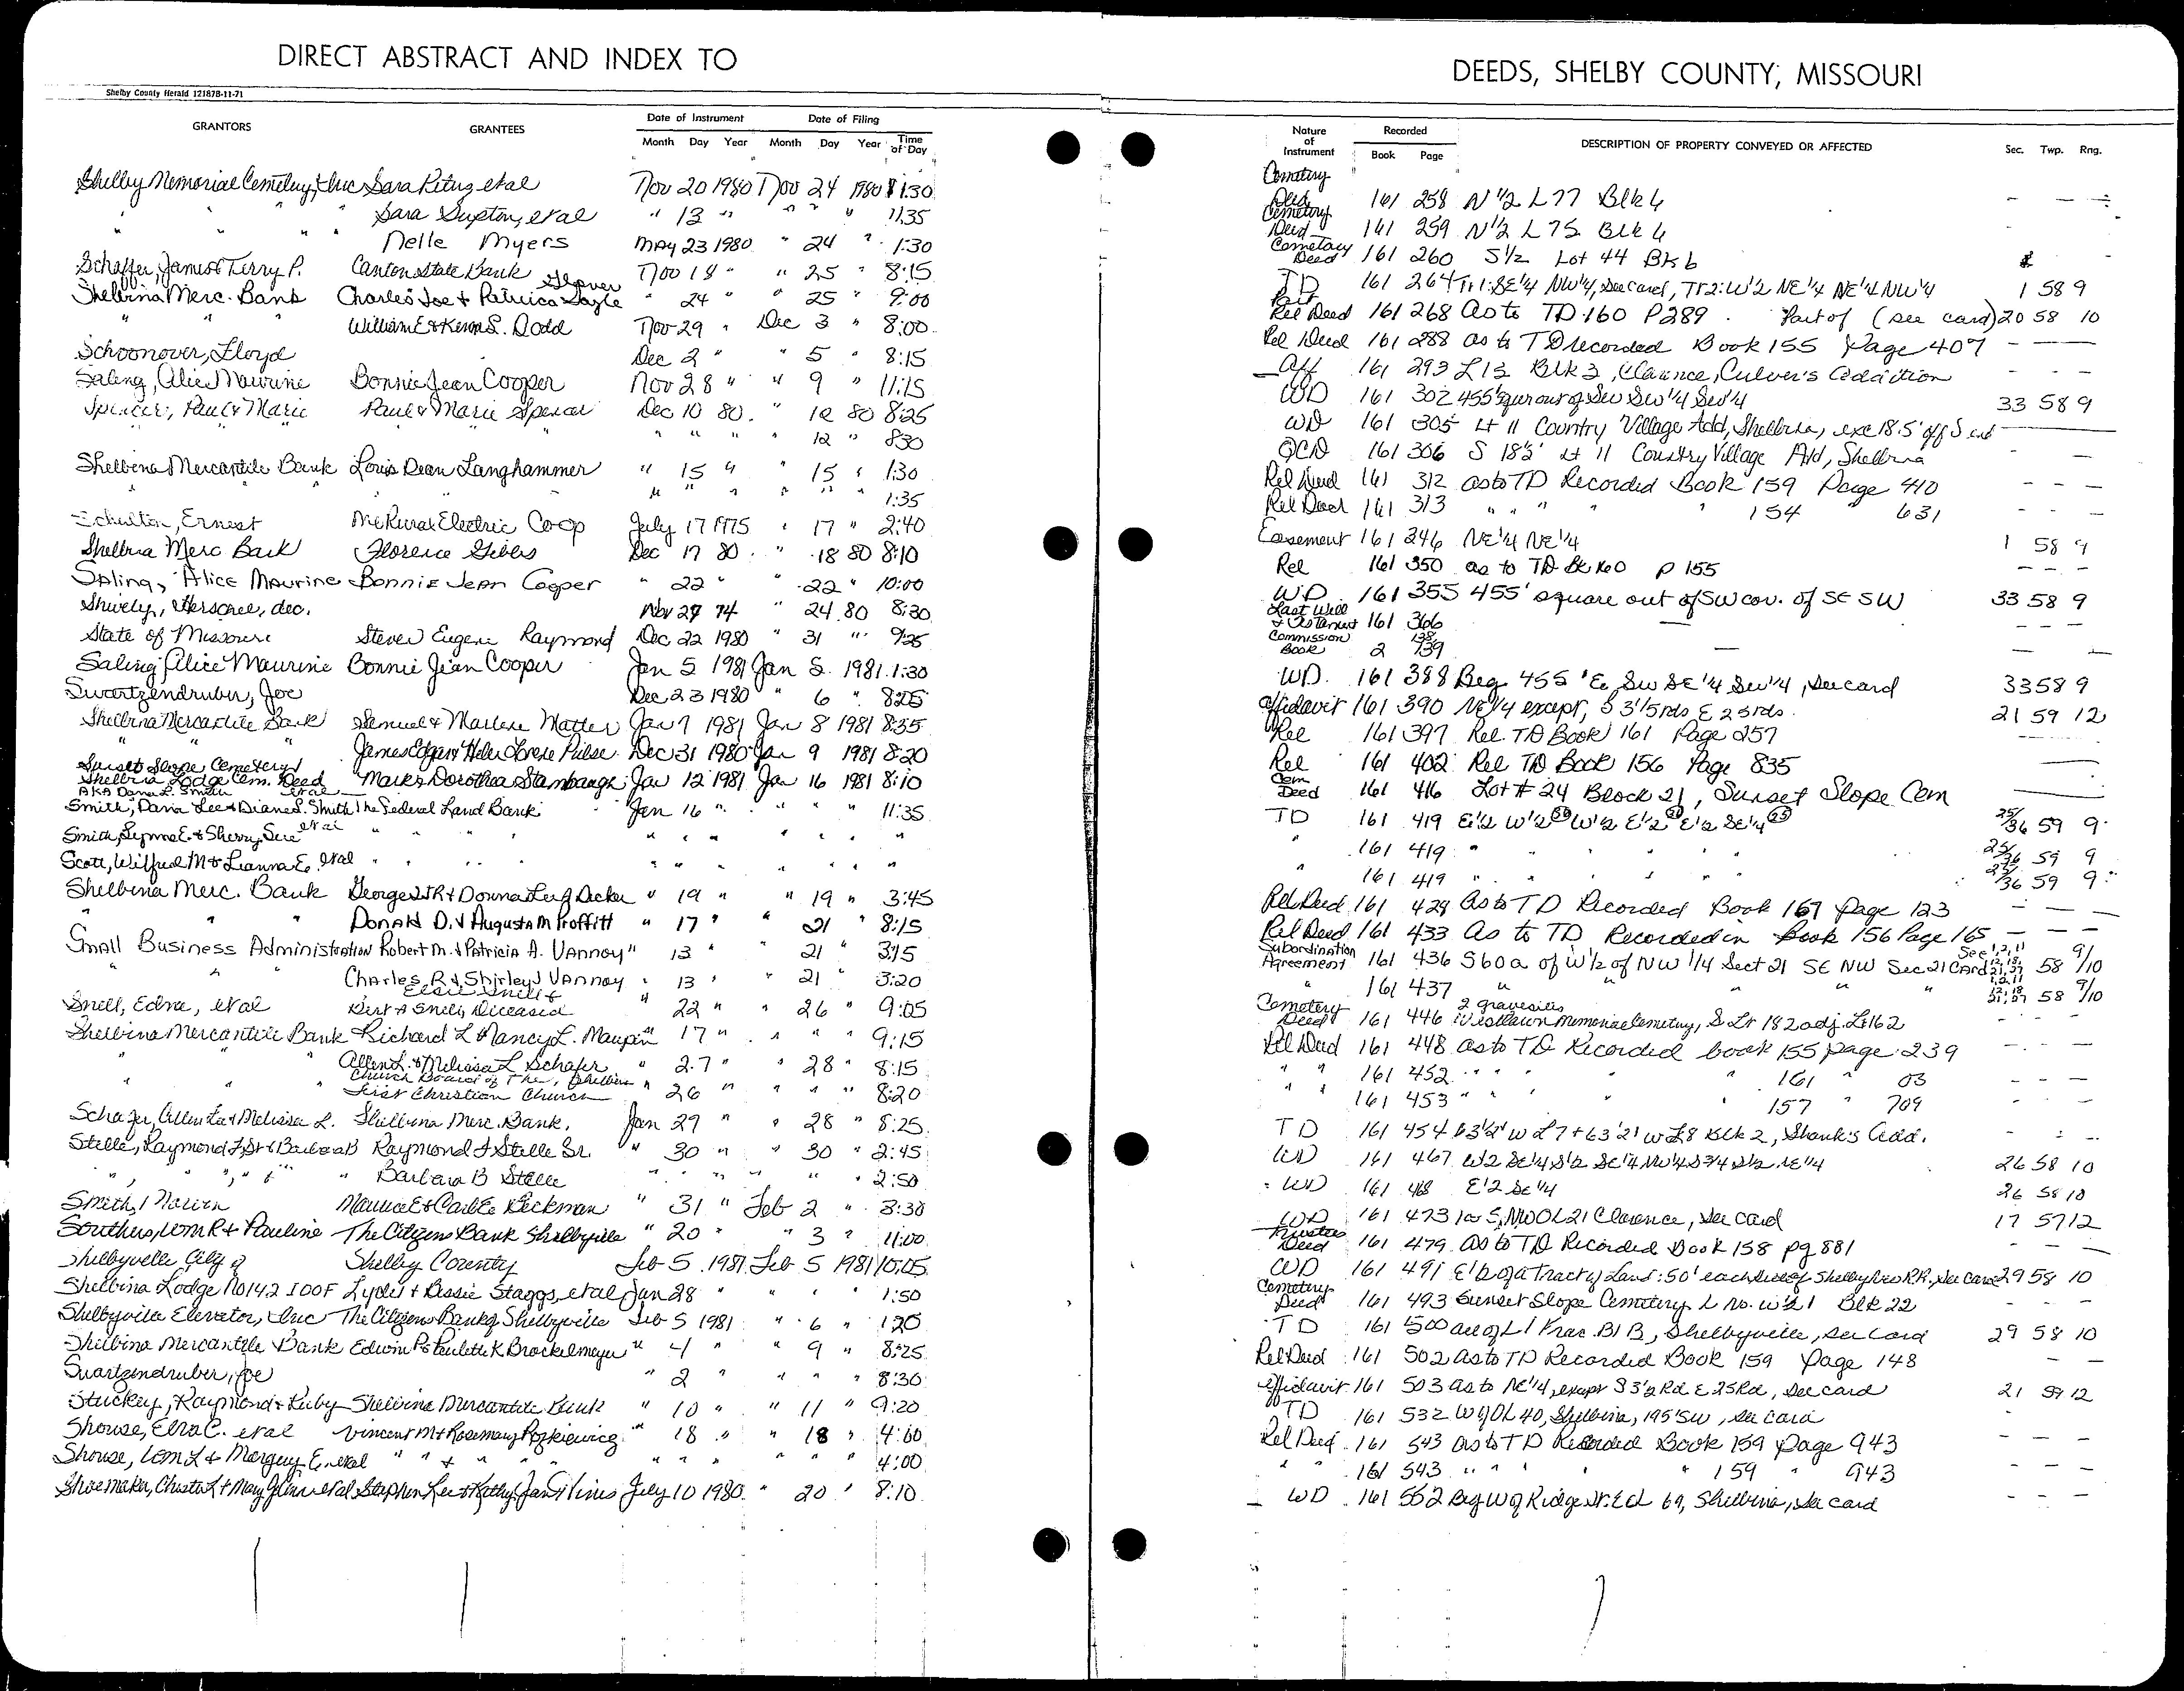 DIRECT ABSTRACT AND INDEX TO
Shelby County Herald 121878-11-71
GRANTORS GRANTEES Date of Instrument Date of Filing
Month Day Year Month Day Year Time of Day
Shelby Memorial Cemetery, Inc Sara etal Nov 20 1980 Nov 24 1980 1:30
" " " Sara etal " 13 " " " " 11:35
" " " Nelle Myers MAy 23 1980 " 24 " 1:30
Schaffer, James & Terry P. Canton State Bank Nov 18 " " 25 " 8:15
Shelbina Merc. Bank Charles Joe & Patricia Glover " 24 " " 25 " 9:00
" " William E & S. Dodd Nov 29 " Dec 3 " 8:00
Schoonover, Lloyd Dec 2 " " 5 " 8:15
Saling, Alice Maurine Bonnie Jean Cooper Nov 28 " " 9 " 11:15
Spencer, Paul & Marie Paul & Marie Spencer Dec 10 80 " 12 80 8:25
" " " " 12 " 8:30
Shelbina Mercantile Bank Louis Dean Langhammer " 15 " " 15 " 1:30
" " " " " " 1:35
Ernest Rural Electric Co-op July 17 1975 " 17 " 2:40
Shelbina Merc Bank Florence Dec 17 80 " 18 80 8:10
Saling, Alice Maurine Bonnie Jean Cooper " 22 " " 22 " 10:00
Shively, Herschel, dec. Nov 27 74 " 24 80 8:30
State of Missouri Steven Eugene Raymond Dec 22 1980 " 31 " 9:25
Saling, Alice Maurine Bonnie Jean Cooper Jan 5 1981 Jan 5 1981 1:30
Swartzendruber, Joe Dec 23 1980 " 6 " 8:25
Shelbina Mercantile Bank Samuel & Marlene Matter Jan 7 1981 Jan 8 1981 8:35
" " James Edgar & Helen Dec 31 1980 Jan 9 1981 8:20
Sunset Slope Cemetery
Shelbina Lodge Cem. Deed Mark & Dorothea Stambaugh Jan 12 1981 Jan 16 1981 8:10
AKA Dana L. Smith etal
Smith, Dana Lee & Diane S. Smith The Federal Land Bank Jan 16 " " " " 11:35
Smith, Lynn E. & Sherry Sue etal " " " " " " "
Scott, Wilfred M & Leanna E. etal " " " " " " "
Shelbina Merc. Bank George & Donna Decker " 19 " " 19 " 3:45
" " " Donald D. & Augusta M Proffitt " 17 " " 21 " 8:15
Small Business Administration Robert M. & Patricia A. Vannoy " 13 " " 21 " 3:15
" " Charles R & Shirley J Vannoy " 13 " " 21 " 3:20
Snell, Edna, etal Elsie Snell & Snell, Diceased " 22 " " 26 " 9:05
Shelbina Mercantile Bank Richard L & Nancy L. Maupin " 17 " " " " 9:15
" " Allen L. & Melissa L Schafer " 27 " " 28 " 8:15
" " " Church Board of The, Shelbina First Christian Church " 26 " " " " 8:20
Schafer, Allen Lee & Melissa L. Shelbina Merc. Bank. Jan 29 " " 28 " 8:25
Stelle, Raymond F, Sr & Barbara B Raymond F Stelle Sr. " 30 " " 30 " 2:45
" " " " Barbara B Stelle " " " " " " 2:50
Smith, Maurice E & Beckman " 31 " Feb 2 " 3:30
Southers, Wm R & Pauline The Citizens Bank Shelbyville " 20 " " 3 " 11:00
Shelbyville City of Shelby County Feb 5 1981 Feb 5 1981 10:05
Shelbina Lodge No 142 IOOF Lydel & Bessie Staggs, etal Jan 28 " " " " 1:50
Shelbyville Elevator, Inc The Citizens Bank of Shelbyville Feb 5 1981 " 6 " 1:20
Shelbina Mercantile Bank Edwin P & Paulette K Brockelmeyer " 4 " " 9 " 8:25
Swartzendruber, Joe " 2 " " " " 8:30
Stuckey, Raymond & Ruby Shelbina Mercantile Bank " 10 " " 11 " 9:20
Shouse, Elva C. etal Vincent M & Rosemary " 18 " " 18 " 4:00
Shouse, Wm L & E. etal " " " " " " " " 4:00
Shoemaker, Chester L & Mary etal Stephen Lee & Kathy Jan July 10 1980 " 20 " 8:10
DEEDS, SHELBY COUNTY, MISSOURI
Nature of Instrument Recorded Book Page DESCRIPTION OF PROPERTY CONVEYED OR AFFECTED Sec. Twp. Rng.
Cemetery Deed 161 258 N 1/2 L 77 Blk 6 - - -
Cemetery Deed 161 259 N 1/2 L 75 Blk 6
Cemetary Deed 161 260 S 1/2 Lot 44 Bk 6
TD 161 264 Tr 1: SE 1/4 NW 1/4, see card, Tr 2: W 1/2 NE 1/4 NE 1/4 NW 1/4 1 58 9
Part Rel Deed 161 268 As to TD 160 P 289. Part of (see card) 20 58 10
Rel Deed 161 288 as to TD recorded Book 155 Page 407 - -
Aff 161 293 L 13 Blk 3, Clarence, Culver's Addition - - -
WD 161 302 455' squr out of SW SW 1/4 33 58 9
WD 161 305 Lt 11 Country Village Add, Shelbina, exc 18.5' off S end
QCD 161 306 S 18 1/2' Lt 11 Country Village Add, Shelbina - -
Rel Deed 161 312 as to TD Recorded Book 159 Page 410 - - -
Rel Deed 161 313 " " " " 154 631 - - -
Easement 161 246 NE 1/4 NE 1/4 1 58 9
Rel 161 350 as to TD Bk 160 p 155 - - -
WD 161 355 455' square out of SW cor. of SE SW 33 58 9
Last Will & Testament 161 366 - - -
Commission Book 2 138 739 - - -
WD. 161 388 Beg 455' E, SW SE 1/4 SW 1/4, see card 33 58 9
Affidavit 161 390 NE 1/4 except, S 3 1/5 rds E 25 rds. 21 59 12
Rel 161 397 Rel. TD Book 161 Page 257
Rel 161 402 Rel TD Book 156 Page 835
Cem Deed 161 416 Lot # 24 Block 21, Sunset Slope Cem
TD 161 419 E 1/2 W 1/2 W 1/2 E 1/2 E 1/2 SE 1/4 25/36 59 9
" 161 419 " " " " " 25/36 59 9
" 161 419 " " " " " 25/36 59 9
Rel Deed 161 428 As to TD Recorded Book 157 Page 123 - - -
Rel Deed 161 433 As to TD Recorded in Book 156 Page 165 - - -
Subordination Agreement 161 436 S 60 a of W 1/2 of NW 1/4 Sect 21 SE NW Sec 21 See Card 58 9/10
" 161 437 " " " " 58 9/10
Cemetery Deed 161 446 2 gravesites Westlawn Memorial Cemetery, S Lt 182 adj. Lt 162 - - -
Rel Deed 161 448 as to TD Recorded book 155 page 239 - - -
" " 161 452 " " " " 161 " 03 - - -
" " 161 453 " " " " 157 " 709 - - -
TD 161 454 63 1/2' W L 7 + 63' 21' W L 8 Blk 2, Shank's Add. - - -
WD 161 467 W 1/2 SE 1/4 26 58 10
WD 161 468 E 1/2 SE 1/4 26 58 10
WD 161 473 Clarence, see card 17 57 12
Trustees Deed 161 479 As to TD Recorded Book 158 pg 881 - - -
WD 161 491 E 1/2 of a Tract of Land: 50' each side of RR, see card 29 58 10
Cemetery Deed 161 493 Sunset Slope Cemetery L No. W 1/2 1 Blk 22 - - -
TD 161 500 all of L 1 Frac. Bl B, Shelbyville, see card 29 58 10
Rel Deed 161 502 As to TD Recorded Book 159 Page 148 - -
Affidavit 161 503 as to NE 1/4, except S 3 1/2 Rd E 25 Rd, see card 21 59 12
TD 161 532 W of OL 40, Shelbina, 195' SW, see card - - -
Rel Deed 161 543 As to TD Recorded Book 159 Page 943 - - -
" " 161 543 " " " " 159 " 943 - - -
WD 161 552 Beg W of Ridge St. 69, Shelbina, see card